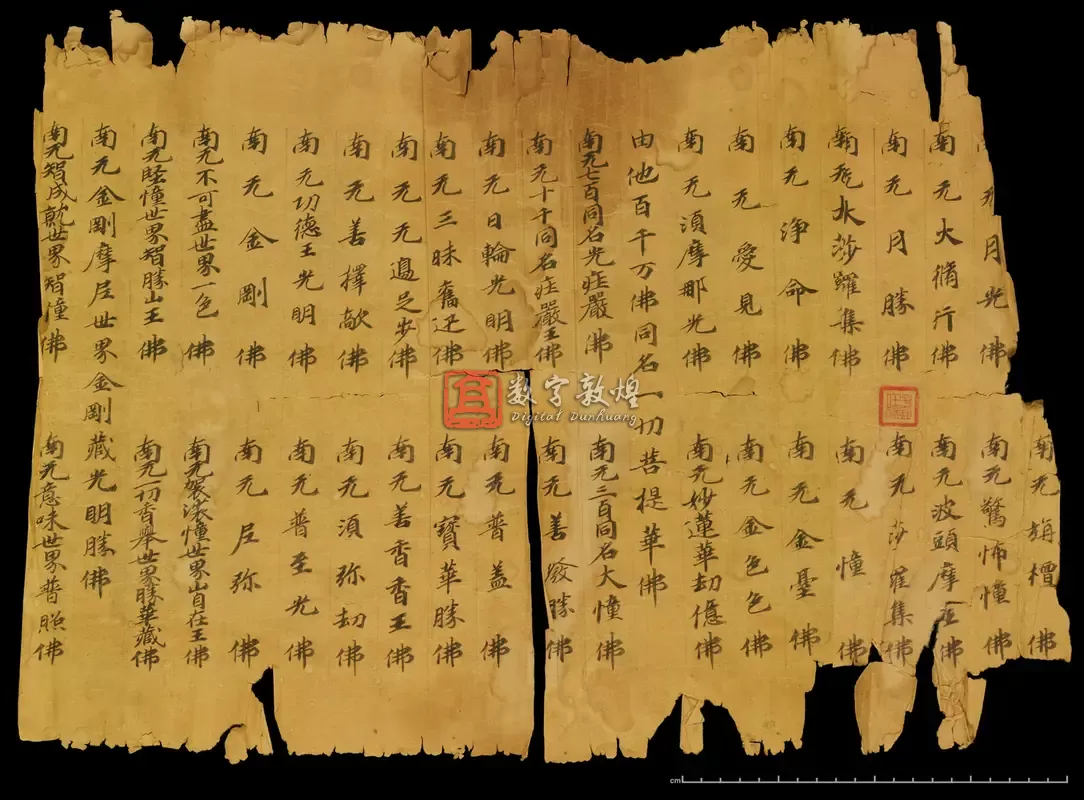 南无旃檀佛
无月光佛　南无驚怖憧佛
南无大脩行佛　南无波頭摩佛
南无月勝佛　南无莎羅集佛
南无水莎羅集佛　南无憧佛
南无淨命佛　南无金憂佛
南无愛見佛　南无金色色佛
南无湏摩那光佛　南无妙蓮華劫億佛
由他百千万佛同名一切菩提華佛
南无七百同名光莊嚴佛　南无三百同名大憧佛
南无十千同名莊嚴王佛　南无善發勝佛
南无日輪光明佛　南无普蓋佛
南无三昧奮迅佛　南无寶華勝佛
南无无邊足步佛　南无善香香王佛
南无善擇敵佛　南无湏弥劫佛
南无功德王光明佛　南无普至光佛
南无金剛佛　南无尼弥佛
南无不可盡世界一色佛　南无袈裟憧世界山自在王佛
南无憧世界智勝山王佛　南无一切香舉世界勝華藏佛
南无金剛摩尼世界金剛藏光明勝佛
南无智成就世界智憧佛　南无意味世界普照佛
数字敦煌
Digital Dunhuang
cm